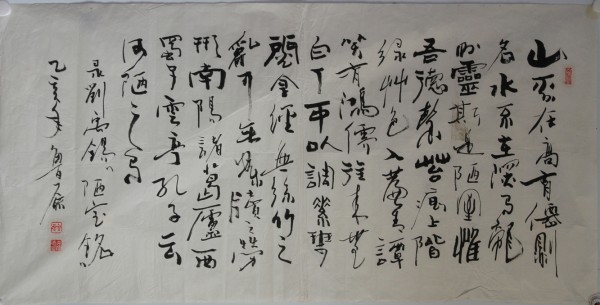 山不在高有僊則
名水不在深有龍
則靈斯是陋室惟
吾德馨苔痕上階
緑艸色入簾青譚
笑有鴻儒往來無
白丁可以調素琴
閱金經無絲竹之
亂耳無案牘之勞
形南陽諸葛廬西
蜀子雲亭孔子云
何陋之有
录劉禹錫陋室銘
乙亥年